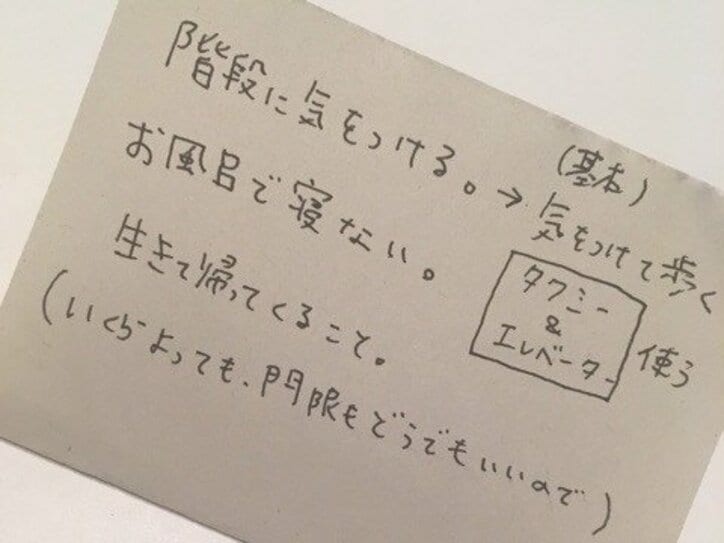 階段に気をつける。→
(基本)
気をつけて歩く
タクシー
&
エレベーター
使う
お風呂で寝ない。
生きて帰ってくること。
(いくらよっても、門限もどうでもいいので)